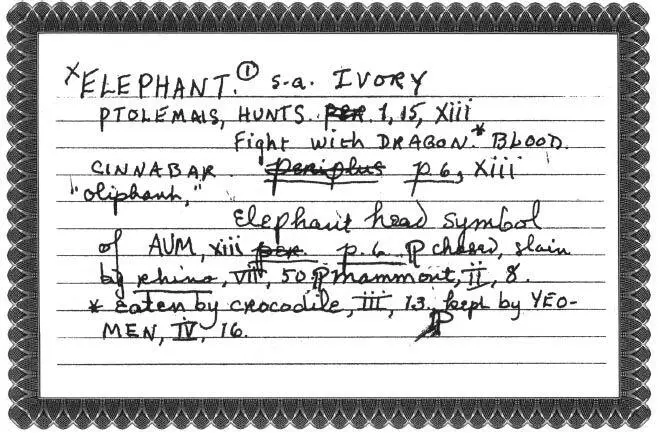 xELEPHANT.① s-a. IVORY
PTOLEMAIS, HUNTS. PER. 1, 15, Xiii
Fight with DRAGON.* BLOOD.
CINNABAR. periplus p. 6, Xiii
"oliphant,"
Elephant head symbol
of AUM, xiii per. p. 6. ¶ chased, slain
by rhino, VII, 50. ¶ mammont, II, 8.
* Eaten by crocodile, III, 13. kept by YEO-
MEN, IV, 16. ¶